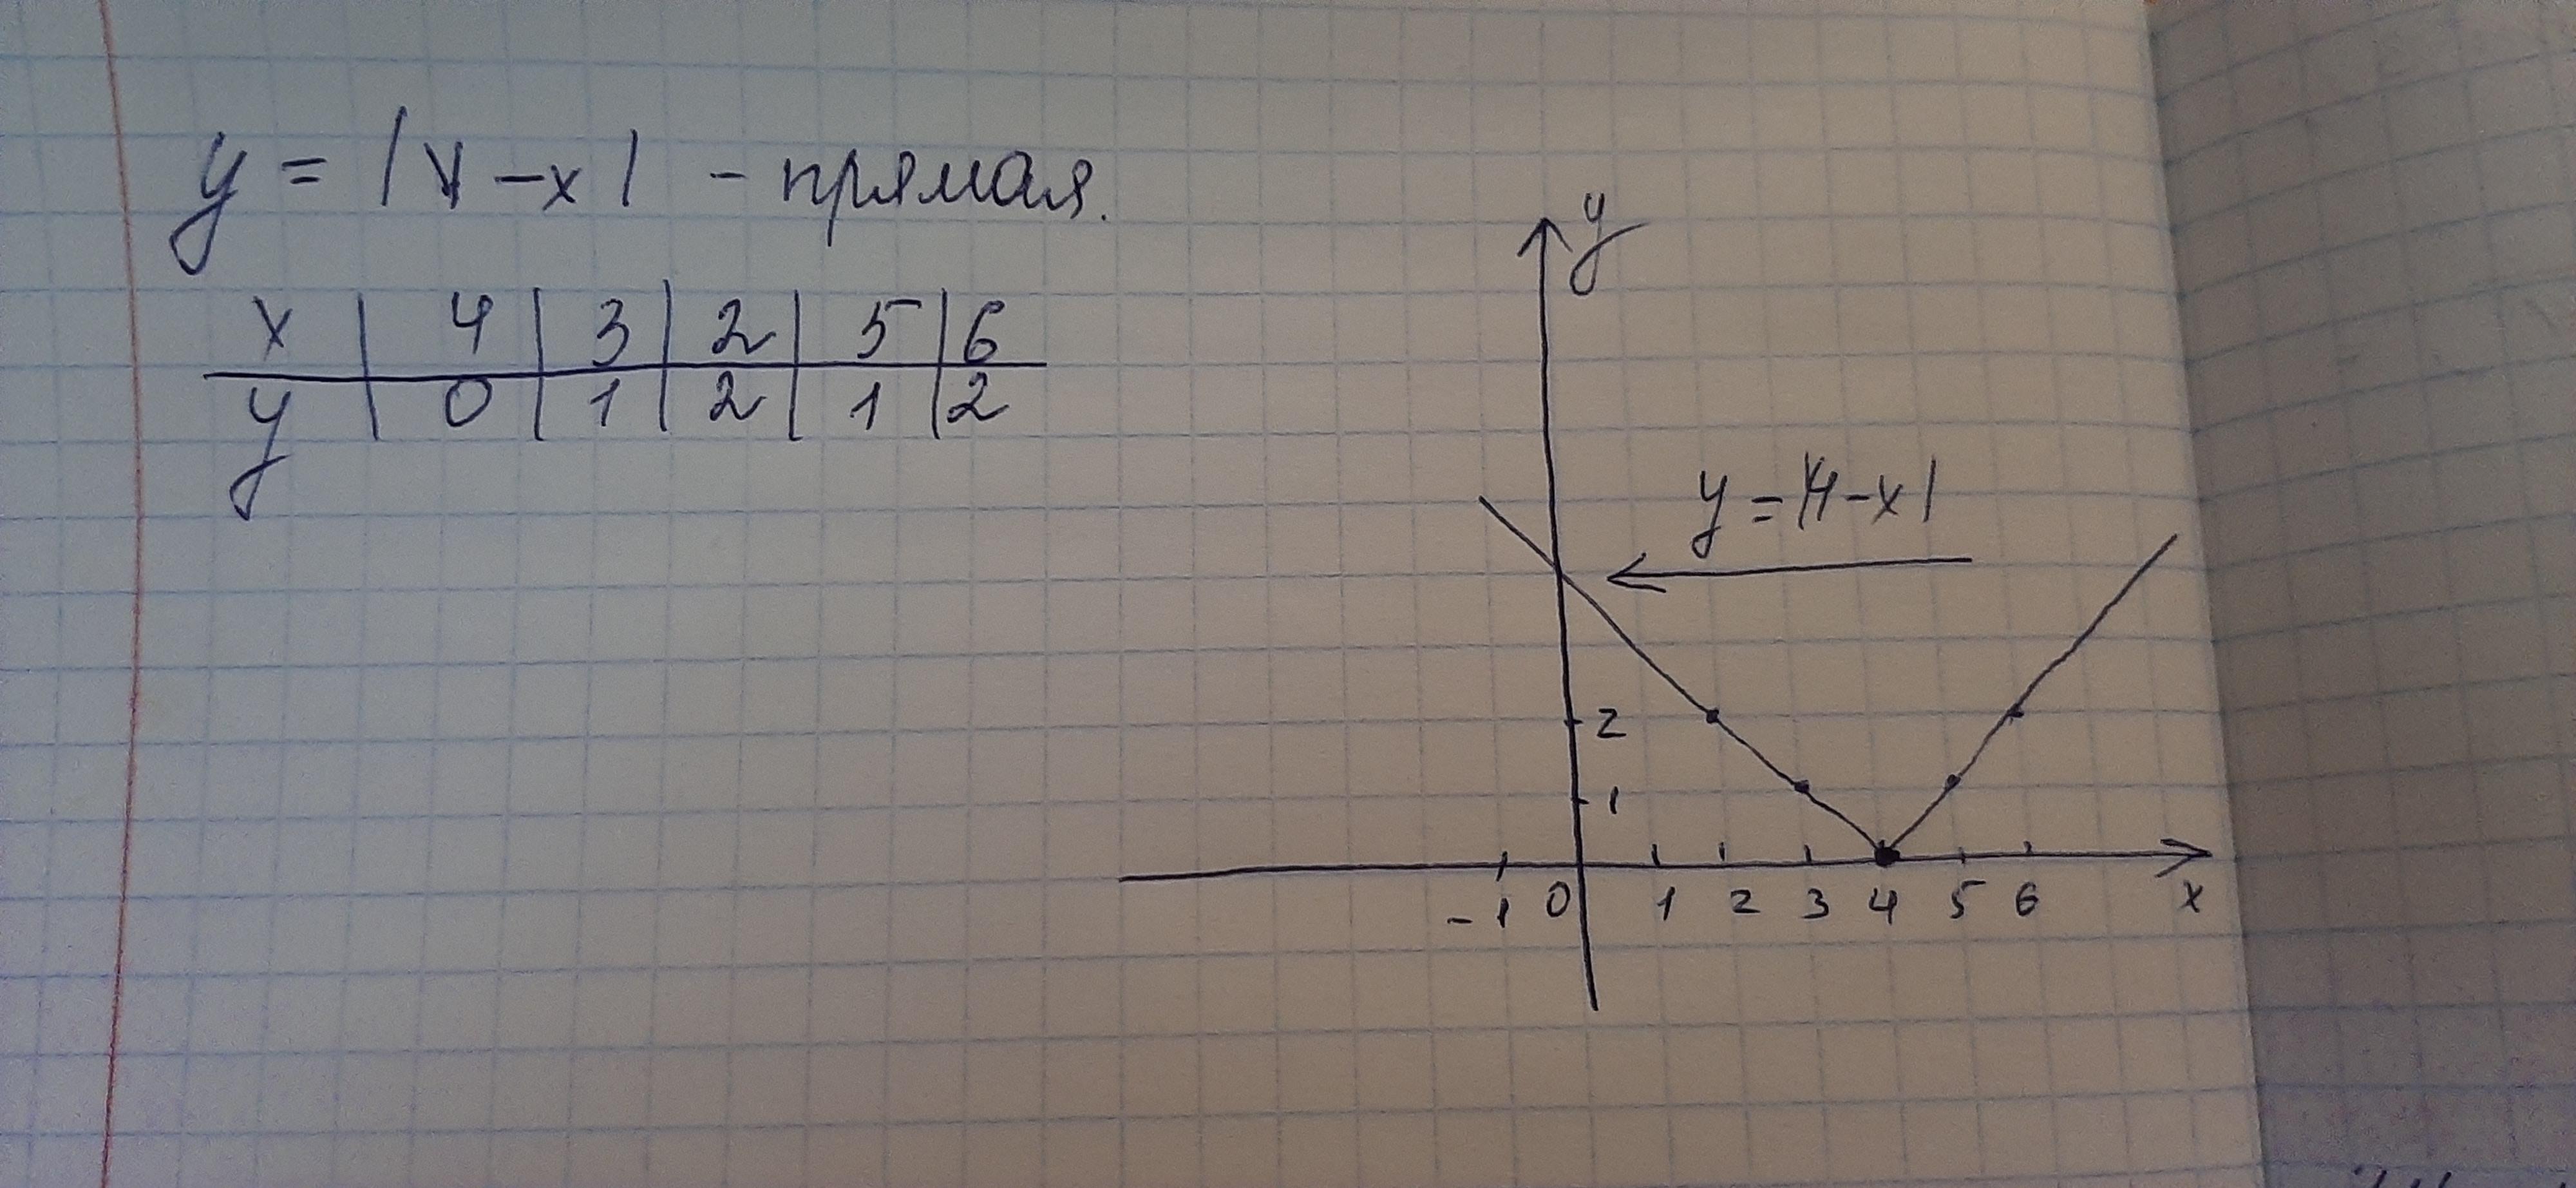 y = |4 - x| - прямая.
x | 4 | 3 | 2 | 5 | 6
y | 0 | 1 | 2 | 1 | 2
y
y = |4 - x|
2
1
-1 0 1 2 3 4 5 6 x